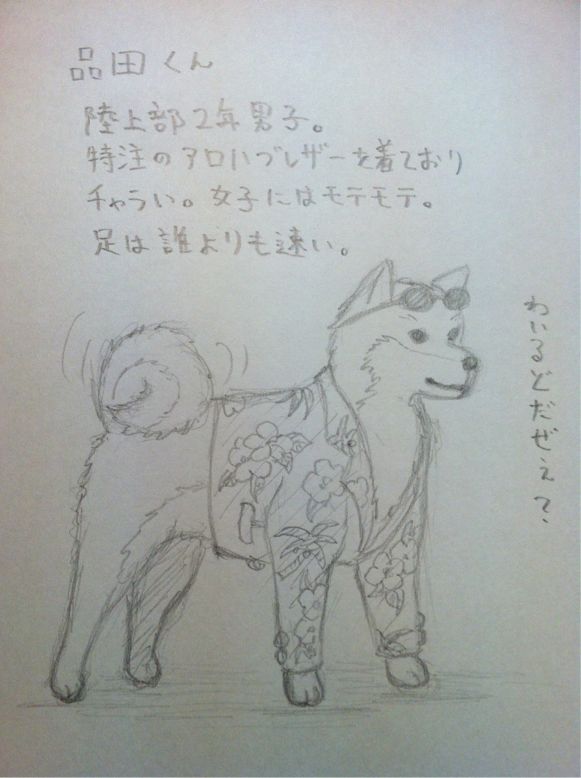 品田くん
陸上部2年男子。
特注のアロハブレザーを着ており
チャラい。女子にはモテモテ。
足は誰よりも速い。
わいるどだぜぇて、